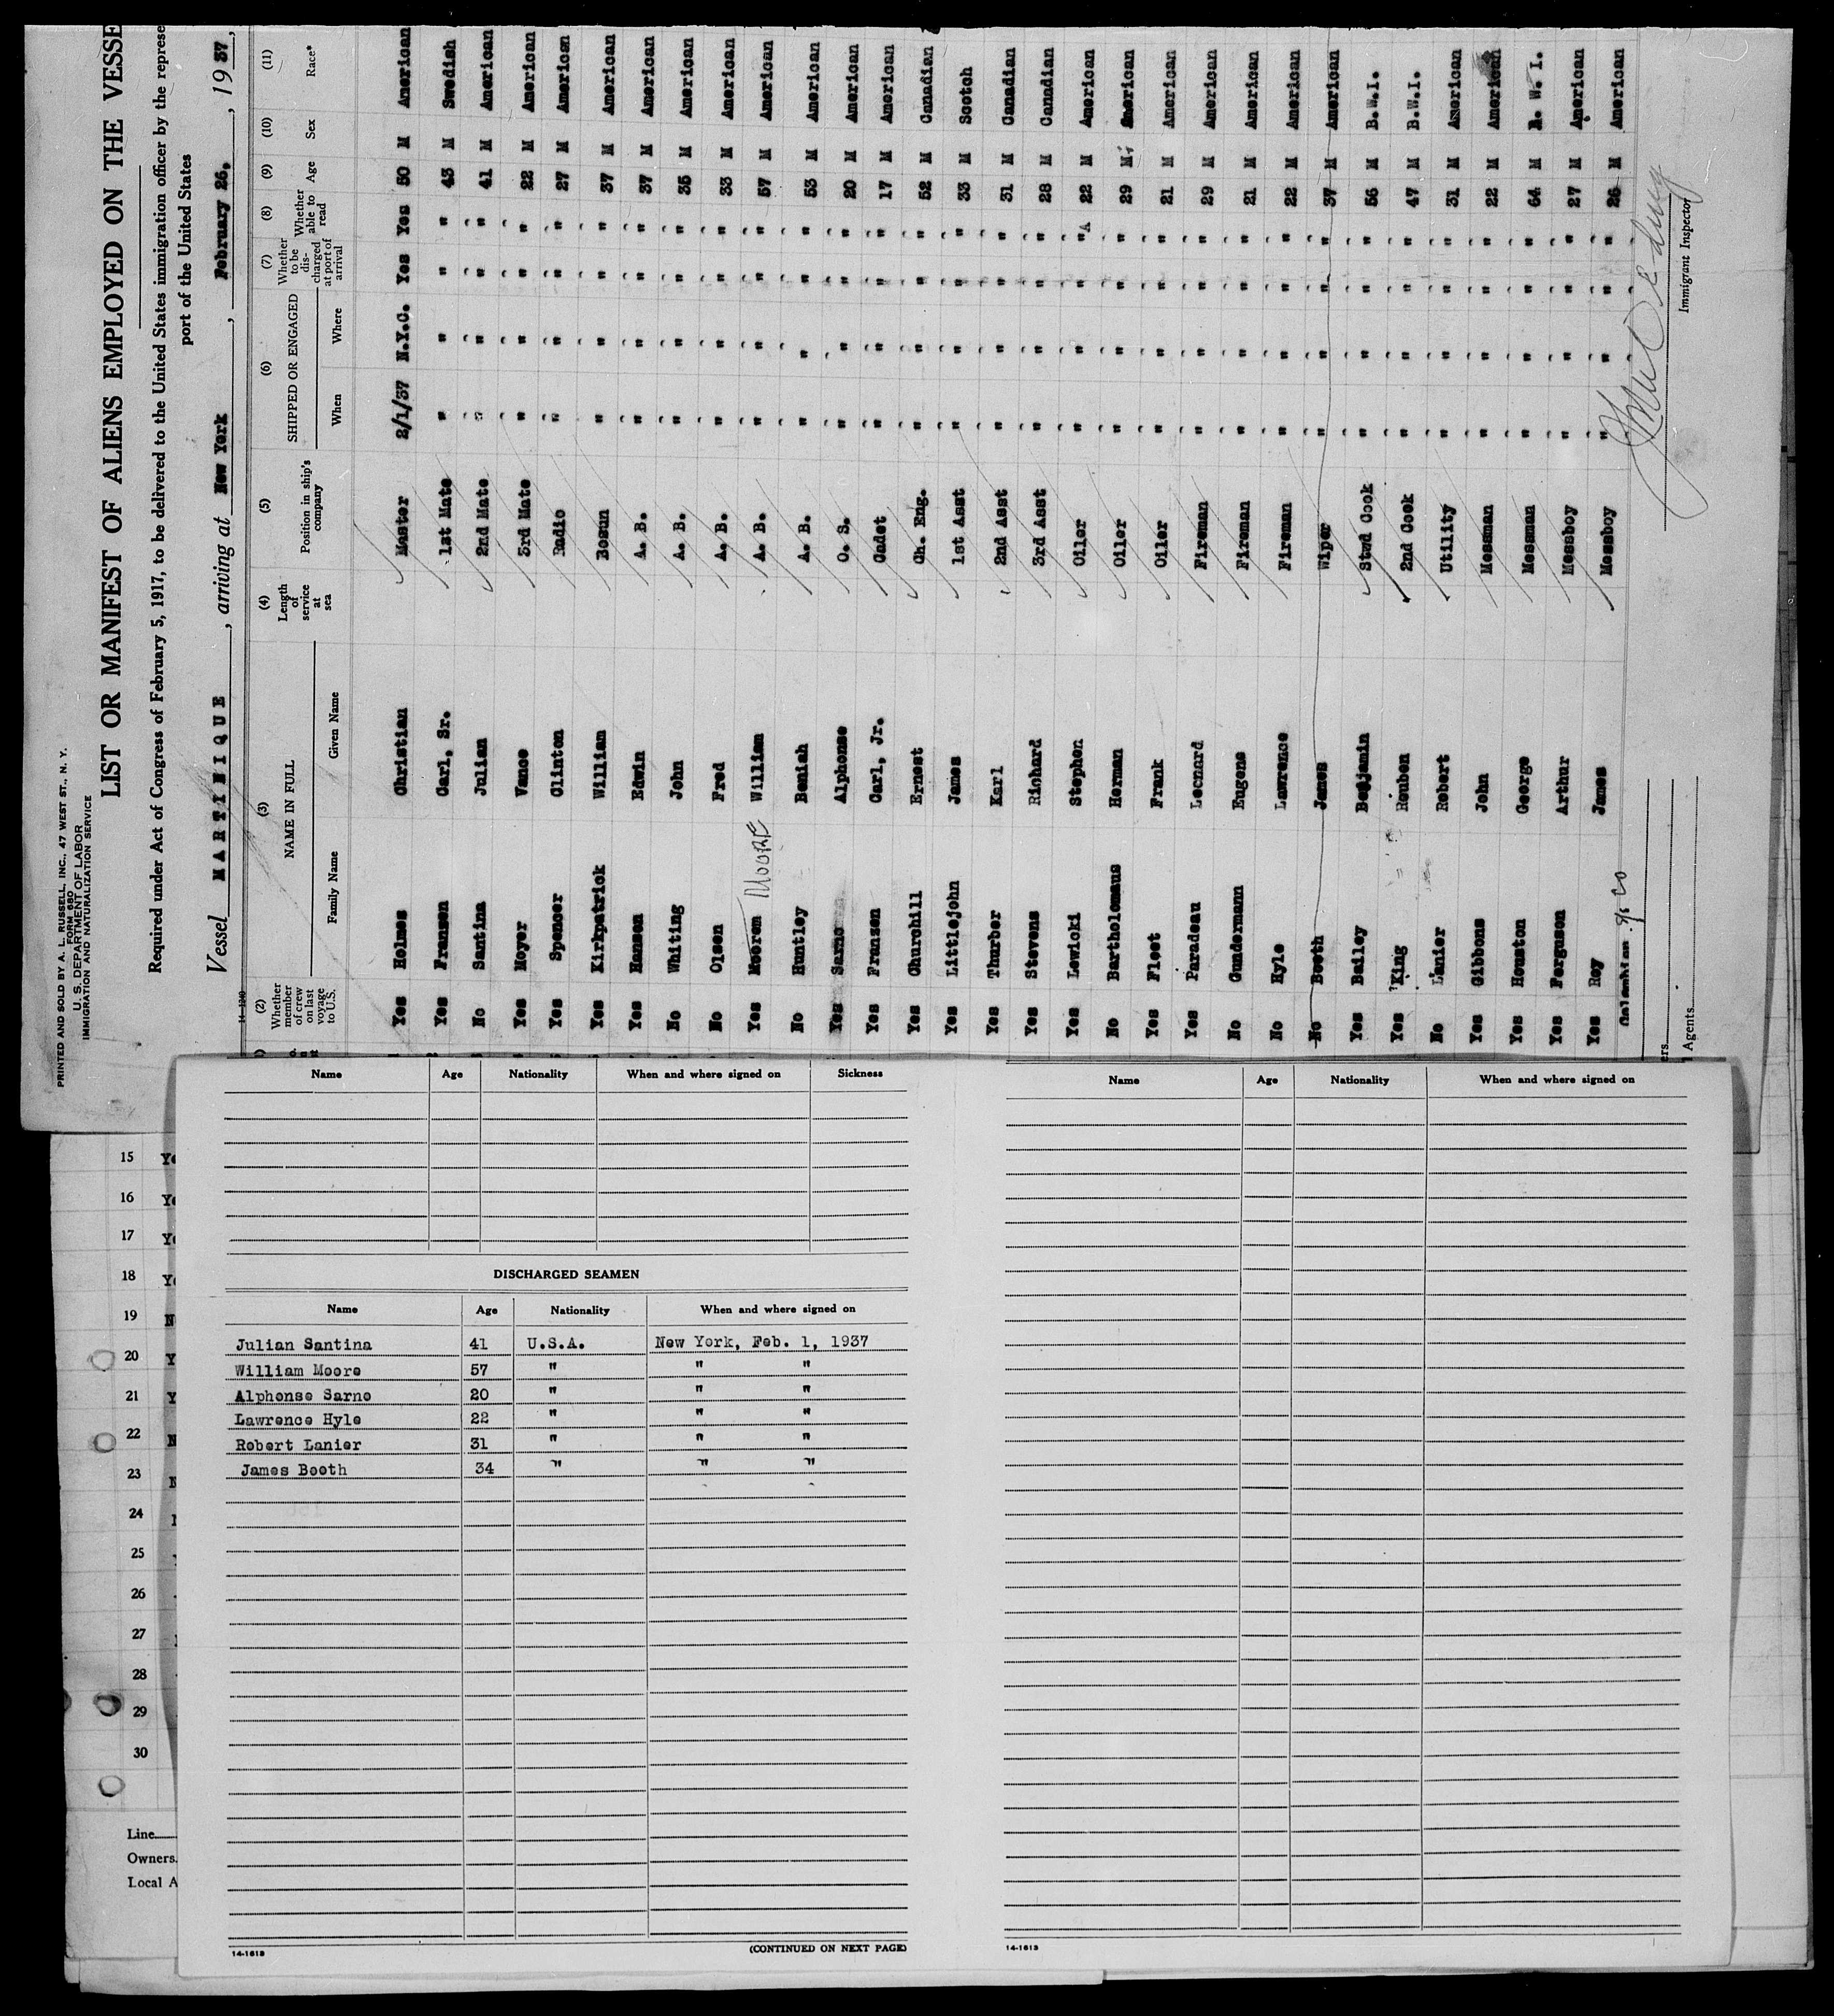 PRINTED AND SOLD BY A. L. RUSSELL, INC., 47 WEST ST., N. Y.
FORM 680
U. S. DEPARTMENT OF LABOR
IMMIGRATION AND NATURALIZATION SERVICE
LIST OR MANIFEST OF ALIENS EMPLOYED ON THE VESSE
Required under Act of Congress of February 5, 1917, to be delivered to the United States immigration officer by the represe
port of the United States
Vessel MARTINIQUE, arriving at New York, February 26, 1937,
14-1240
(2) (3) (4) (5) (6) (7) (8) (9) (10) (11)
Whether member of crew on last voyage to U.S. NAME IN FULL Length of service at sea Position in ship's company SHIPPED OR ENGAGED Whether to be discharged at port of arrival Whether able to read Age Sex Race*
Family Name Given Name When Where
Yes Holmes Christian Master 2/1/37 N.Y.C. Yes Yes 50 M American
Yes Fransen Carl, Sr. 1st Mate " " " " 43 M Swedish
No Santina Julian 2nd Mate " " " " 41 M American
Yes Moyer Vance 3rd Mate " " " " 22 M American
Yes Spencer Clinton Radio " " " " 27 M American
Yes Kirkpatrick William Bosun " " " " 37 M American
Yes Hansen Edwin A. B. " " " " 37 M American
No Whiting John A. B. " " " " 35 M American
No Olsen Fred A. B. " " " " 33 M American
Yes Mooren MOORE William A. B. " " " " 57 M American
No Huntley Beniah A. B. " " " " 53 M American
Yes Sarno Alphonse O. S. " " " " 20 M American
Yes Franzen Carl, Jr. Cadet " " " " 17 M American
Yes Churchill Ernest Ch. Eng. " " " " 52 M Canadian
Yes Littlejohn James 1st Asst " " " " 33 M Scotch
Yes Thurber Karl 2nd Asst " " " " 31 M Canadian
Yes Stevens Richard 3rd Asst " " " " 28 M Canadian
Yes Lewicki Stephen Oiler " " " " 22 M American
No Bartholomaus Herman Oiler " " " " 29 M American
Yes Fleet Frank Oiler " " " " 21 M American
Yes Paradeau Leonard Fireman " " " " 29 M American
No Gundermann Eugene Fireman " " " " 21 M American
No Hyle Lawrence Fireman " " " " 22 M American
No Booth James Wiper " " " " 37 M American
Yes Bailey Benjamin Stwd Cook " " " " 56 M B.W.I.
Yes King Reuben 2nd Cook " " " " 47 M B.W.I.
No Lanier Robert Utility " " " " 31 M American
Yes Gibbons John Messman " " " " 22 M American
Yes Houston George Messman " " " " 64 M B. W. I.
Yes Ferguson Arthur Messboy " " " " 27 M American
Yes Roy James Messboy " " " " 26 M American
Colombian S/S CO
ers
l Agents
Immigrant Inspector
Name Age Nationality When and where signed on Sickness
DISCHARGED SEAMEN
Name Age Nationality When and where signed on
Julian Santina 41 U.S.A. New York, Feb. 1, 1937
William Moore 57 " " "
Alphonse Sarno 20 " " "
Lawrence Hyle 22 " " "
Robert Lanier 31 " " "
James Booth 34 " " "
14-1613
(CONTINUED ON NEXT PAGE)
Name Age Nationality When and where signed on
14-1613
15 Ye
16 Ye
17 Ye
18 Ye
19 N
20 Y
21 Y
22 N
23 N
24
25
26
27
28
29
30
Line
Owners
Local A